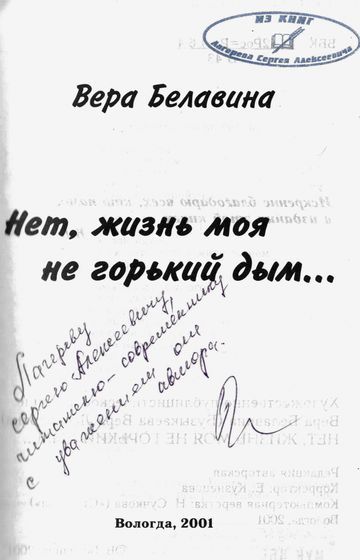 ИЗ КНИГ
Лагерева Сергея Алексеевича
Вера Белавина
Нет, жизнь моя
не горький дым...
Лагереву
Сергею Алексеевичу,
читателю - современнику
с уважением от
автора.
Вологда, 2001